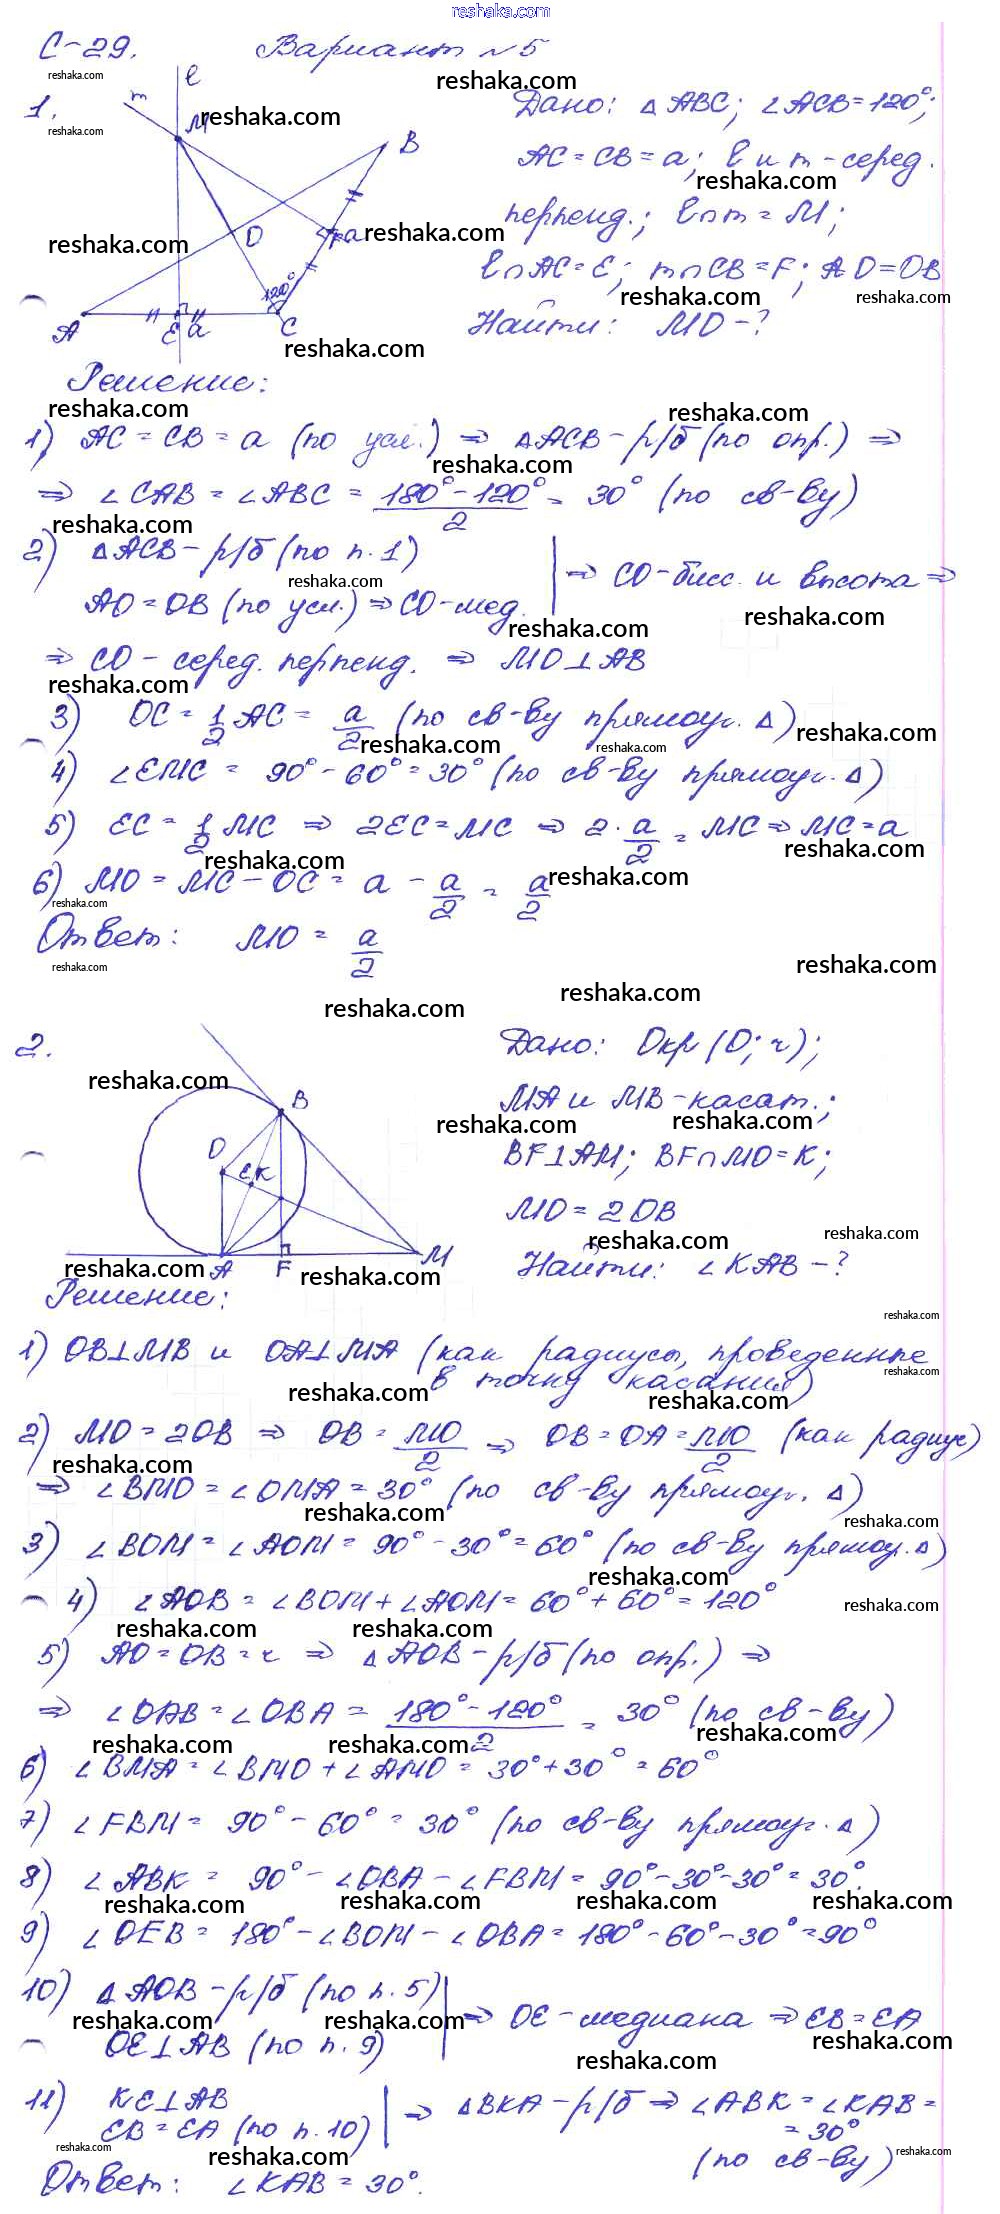 reshaka.com
С-29. Вариант №5
1.
Дано: △ABC; ∠ACB=120°;
AC=CB=a; l и m-серед.
перпенд.; l∩m=M;
l∩AC=E; m∩CB=F; AO=OB
Найти: MO-?
m l M B O F a 120° A E a C
Решение:
1) AC=CB=a (по усл.) ⇒ △ACB-р/б (по опр.) ⇒
⇒ ∠CAB=∠ABC= (180°-120°)/2 = 30° (по св-ву)
2) △ACB-р/б (по п.1)
AO=OB (по усл.) ⇒ CO-мед. | ⇒ CO-бисс. и высота ⇒
⇒ CO-серед. перпенд. ⇒ MO⊥AB
3) OC= 1/2 AC= a/2 (по св-ву прямоуг. △)
4) ∠EMC= 90°-60°=30° (по св-ву прямоуг. △)
5) EC= 1/2 MC ⇒ 2EC=MC ⇒ 2· a/2 = MC ⇒ MC=a
6) MO=MC-OC= a - a/2 = a/2
Ответ: MO= a/2
2.
Дано: Окр(O; r);
MA и MB-касат.;
BF⊥AM; BF∩MO=K;
MO=2OB
Найти: ∠KAB-?
B O E K A F M
Решение:
1) OB⊥MB и OA⊥MA (как радиусы, проведенные
в точку касания)
2) MO=2OB ⇒ OB= MO/2 ⇒ OB=OA= MO/2 (как радиус)
⇒ ∠BMO=∠OMA=30° (по св-ву прямоуг. △)
3) ∠BOM=∠AOM= 90°-30°=60° (по св-ву прямоуг. △)
4) ∠AOB=∠BOM+∠AOM=60°+60°=120°
5) AO=OB=r ⇒ △AOB-р/б (по опр.) ⇒
⇒ ∠OAB=∠OBA= (180°-120°)/2 = 30° (по св-ву)
6) ∠BMA=∠BMO+∠AMO=30°+30°=60°
7) ∠FBM= 90°-60°=30° (по св-ву прямоуг. △)
8) ∠ABK= 90°-∠OBA-∠FBM=90°-30°-30°=30°.
9) ∠OEB=180°-∠BOM-∠OBA=180°-60°-30°=90°
10) △AOB-р/б (по п.5)
OE⊥AB (по п.9) | ⇒ OE-медиана ⇒ EB=EA
11) KE⊥AB
EB=EA (по п.10) | ⇒ △BKA-р/б ⇒ ∠ABK=∠KAB=
=30°
(по св-ву)
Ответ: ∠KAB=30°.